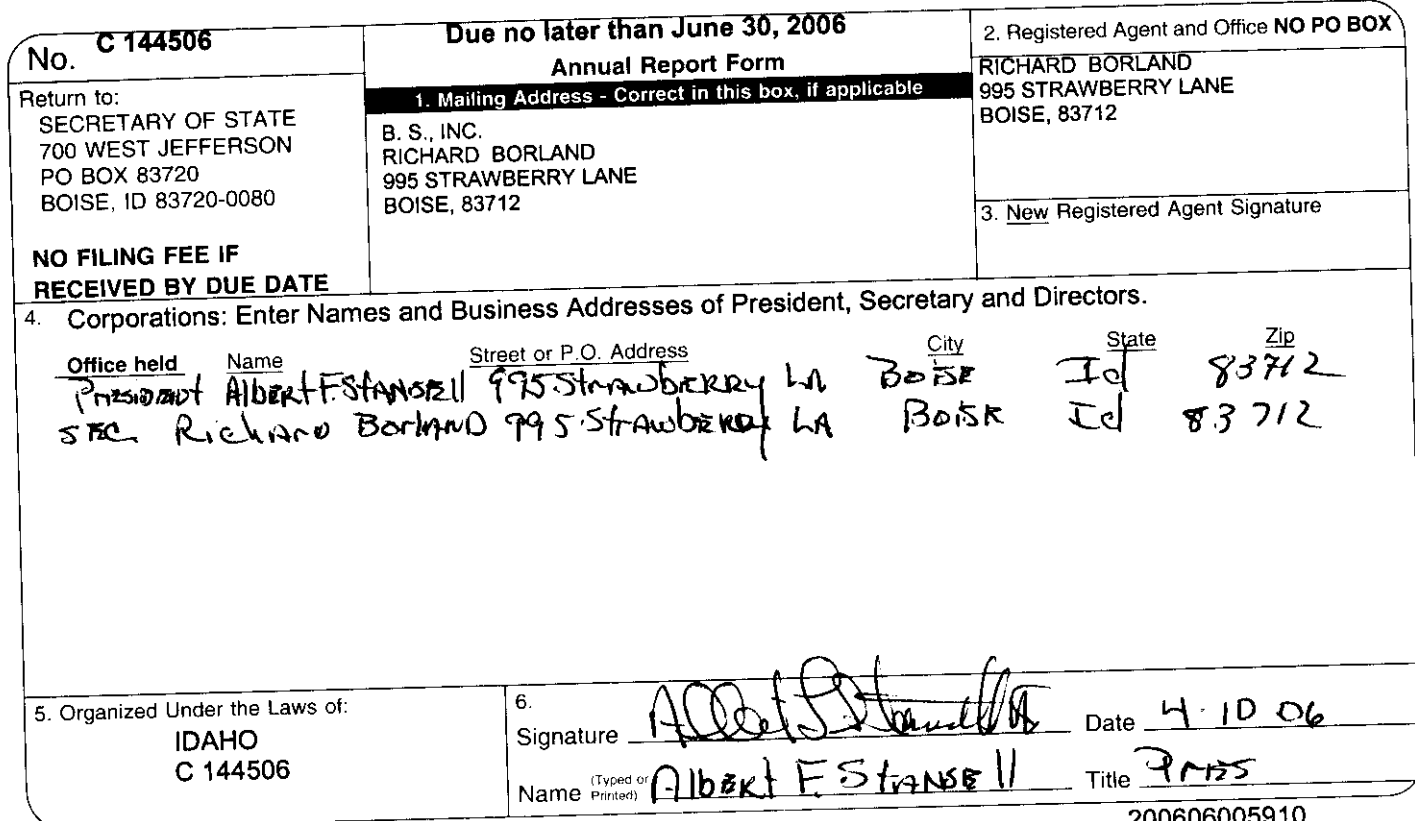 No. C 144506
Return to:
SECRETARY OF STATE
700 WEST JEFFERSON
PO BOX 83720
BOISE, ID 83720-0080
NO FILING FEE IF
RECEIVED BY DUE DATE
Due no later than June 30, 2006
Annual Report Form
1. Mailing Address - Correct in this box, if applicable
B. S., INC.
RICHARD BORLAND
995 STRAWBERRY LANE
BOISE, 83712
2. Registered Agent and Office NO PO BOX
RICHARD BORLAND
995 STRAWBERRY LANE
BOISE, 83712
3. New Registered Agent Signature
4. Corporations: Enter Names and Business Addresses of President, Secretary and Directors.
Office held Name Street or P.O. Address City State Zip
President Albert F. Stansell 995 Strawberry LA Boise Id 83712
SEC Richard Borland 995 Strawberry LA Boise Id 83712
5. Organized Under the Laws of:
IDAHO
C 144506
6.
Signature Albert F Stansell Date 4·10 06
Name (Typed or Printed) Albert F Stansell Title Pres
200606005910